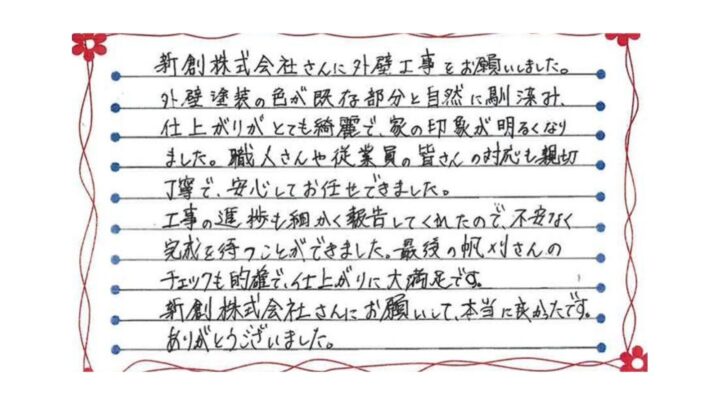 新創株式会社さんに外壁工事をお願いしました。
外壁塗装の色が既存部分と自然に馴染み、
仕上がりがとても綺麗で、家の印象が明るくなり
ました。職人さんや従業員の皆さんの対応も親切
丁寧で、安心してお任せできました。
工事の進捗も細かく報告してくれたので、不安なく
完成を待つことができました。最後の帆刈さんの
チェックも的確で、仕上がりに大満足です。
新創株式会社さんにお願いして、本当に良かったです。
ありがとうございました。